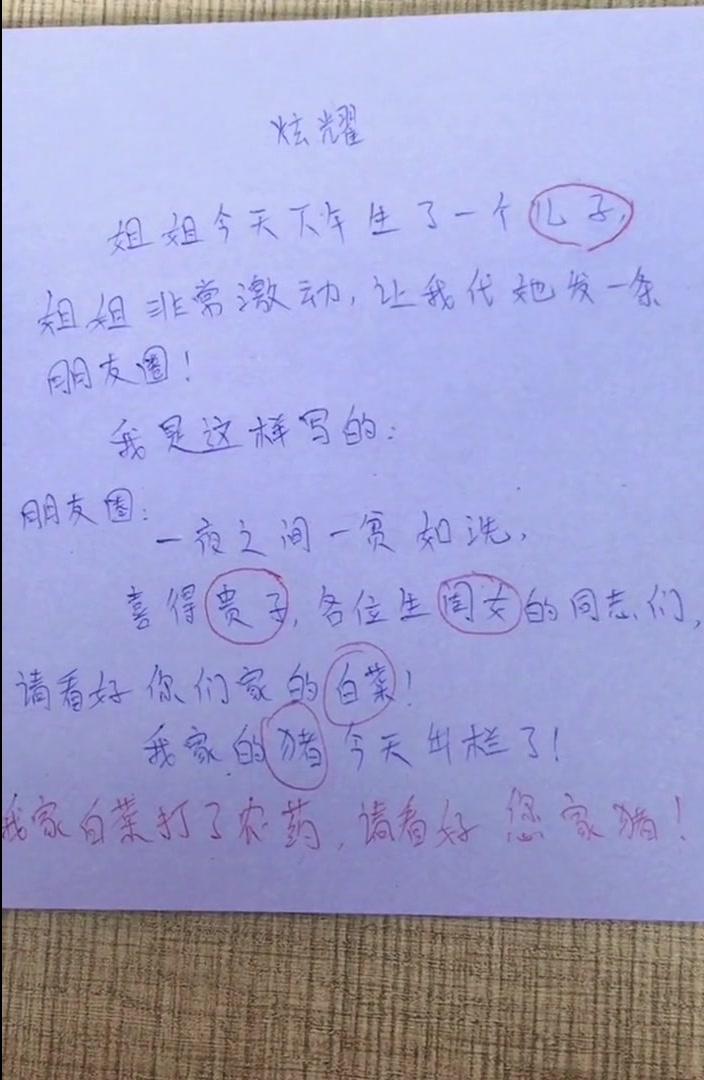 炫耀
姐姐今天下午生了一个儿子,
姐姐非常激动,让我代她发一条
朋友圈!
我是这样写的:
朋友圈:
一夜之间一贫如洗,
喜得贵子,各位生闺女的同志们,
请看好你们家的白菜!
我家的猪今天出栏了!
我家白菜打了农药,请看好您家猪!